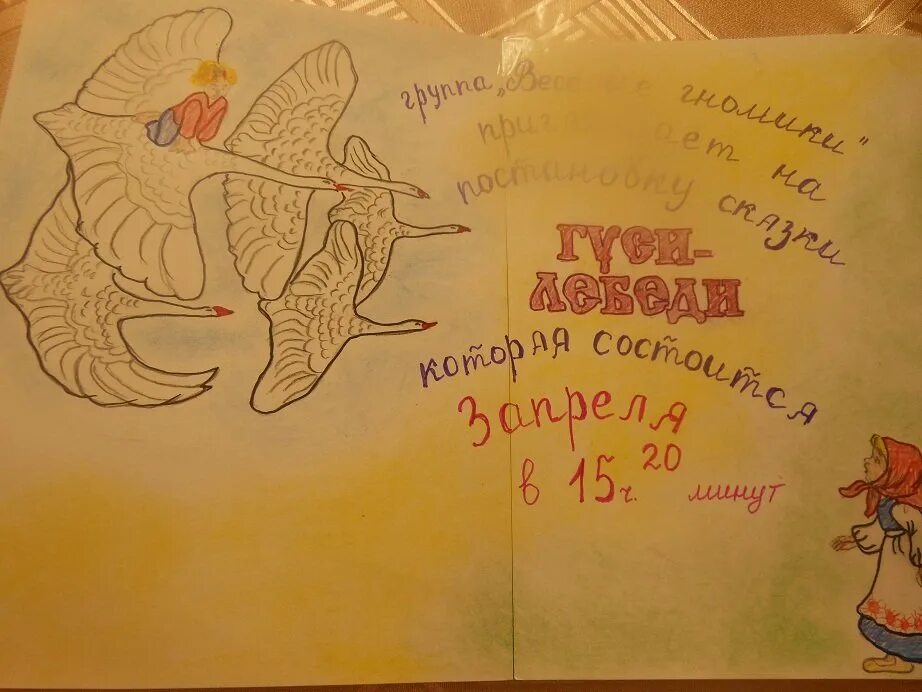 группа „Веселые гномики"
приглашает на
постановку сказки
ГУСИ-
ЛЕБЕДИ
которая состоится
3 апреля
в 15ч. 20 минут